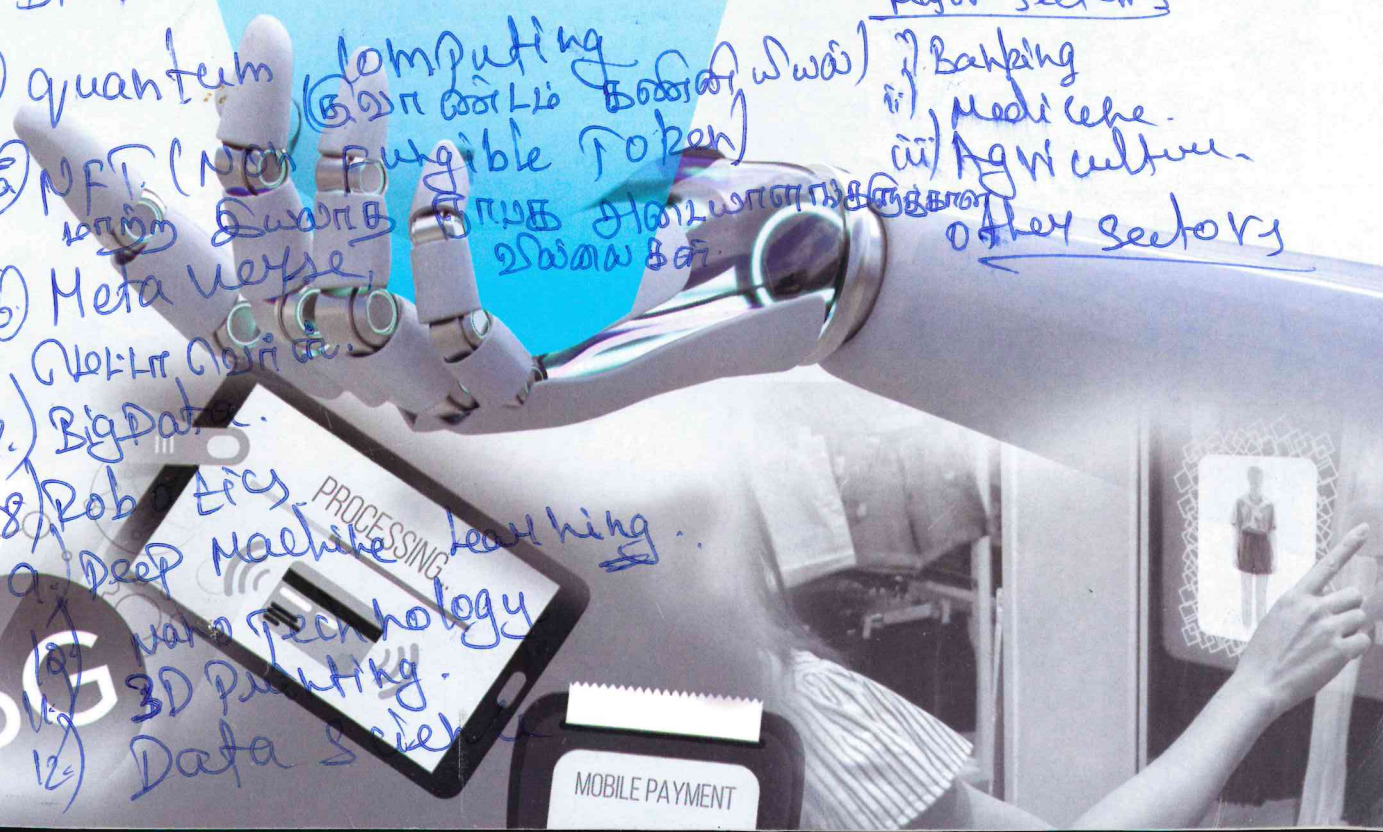 Major sectors
4) quantum Computing
(குவாண்டம் கணினியியல்)
5) NFT. (Non Fungible Token)
மாற்ற இயலாத நாபக அடையாளங்களுக்கான
வில்லைகள்.
6) Meta verse,
மெட்டா வெர்ஸ்.
7.) BigData.
8) Robotics
9. Deep Machine Learning..
10) Nano Technology
11) 3D Printing.
12.) Data Science
i) Banking
ii) Medicine.
iii) Agriculture.
other sectors
PROCESSING...
G
MOBILE PAYMENT